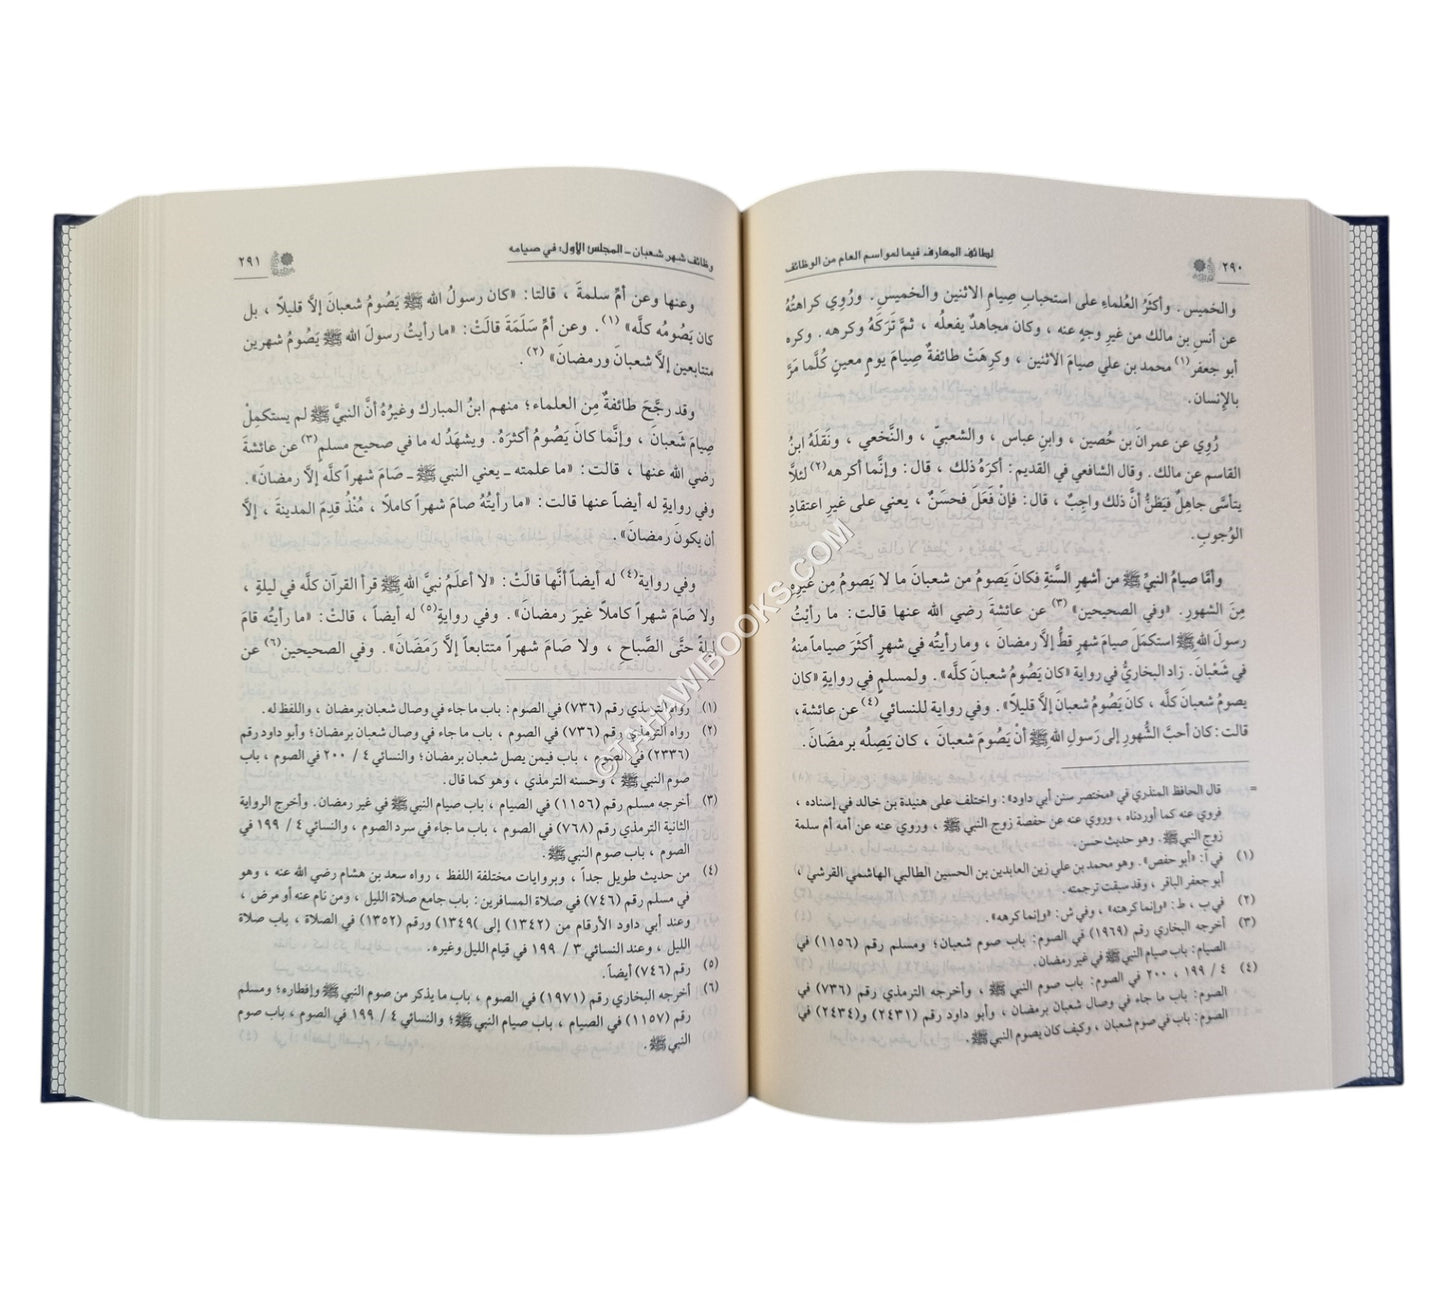 ٢٩٠ لطائف المعارف فيما لمواسم العام من الوظائف
والخميس. وأكثَرُ العُلماءِ على استحبابِ صِيامِ الاثنين والخميسِ. ورُوِي كراهتُهُ
عن أنسِ بن مالك من غيرِ وجهٍ عنه ، وكان مجاهدٌ يفعلُه ، ثمَّ تَرَكَهُ وكرهه. وكره
أبو جعفر(١) محمد بن علي صيامَ الاثنين ، وكَرِهَتْ طائفةٌ صِيامَ يومٍ معينٍ كُلَّما مَرَّ
بالإنسان.
رُوِي عن عمرانَ بن حُصين ، وابنِ عباس ، والشعبيِّ ، والنَّخَعي ، ونَقَلَهُ ابنُ
القاسم عن مالك. وقال الشافعي في القديم: أكرَهُ ذلك ، قال: وإنَّما أكرهه(٢) لئلَّا
يتأسَّى جاهِلٌ فيَظنُّ أنَّ ذلك واجِبٌ ، قال: فإنْ فَعَلَ فحسَنٌ ، يعني على غيرِ اعتقادِ
الوُجوبِ.
وأمَّا صيامُ النبيِّ ﷺ من أشهرِ السَّنةِ فكانَ يَصومُ من شعبانَ ما لا يَصومُ مِن غيرِهِ
مِنَ الشهورِ. «وفي الصحيحين» (٣) عن عائشةَ رضي الله عنها قالت: ما رأيْتُ
رسولَ اللهِ ﷺ استكمَل صيامَ شهرٍ قطُّ إلَّا رمضانَ ، وما رأيتُه في شهرٍ أكثَرَ صياماً منهُ
في شَعْبانَ. زاد البخاريُّ في رواية «كان يَصُومُ شعبانَ كلَّه». ولمسلمٍ في روايةِ «كان
يصومُ شعبانَ كلَّه ، كانَ يَصُومُ شعبانَ إلَّا قليلاً». وفي رواية للنسائي(٤) عن عائشة ،
قالت: كان أحبَّ الشُّهورِ إلى رَسولِ اللهِ ﷺ أنْ يَصُومَ شعبانَ ، كان يَصِلُه برمضَانَ.
= قال الحافظ المنذري في «مختصر سنن أبي داود»: واختلف على هنيدة بن خالد في إسناده ،
فروي عنه كما أوردناه ، وروي عنه عن حفصة زوج النبي ﷺ ، وروي عنه عن أمه أم سلمة
زوج النبي ﷺ. وهو حديث حسن.
(١) في آ: «أبو حفص». وهو محمد بن علي زين العابدين بن الحسين الطالبي الهاشمي القرشي ،
أبو جعفر الباقر ، وقد سبقت ترجمته.
(٢) في ب ، ط: «وإنما كرهته» ، وفي ش: «وإنما كرهه».
(٣) أخرجه البخاري رقم (١٩٦٩) في الصوم: باب صوم شعبان؛ ومسلم رقم (١١٥٦) في
الصيام: باب صيام النبي ﷺ في غير رمضان.
(٤) ٤ / ١٩٩ ، ٢٠٠ في الصوم: باب صوم النبي ﷺ ، وأخرجه الترمذي رقم (٧٣٦) في
الصوم: باب ما جاء في وصال شعبان برمضان ، وأبو داود رقم (٢٤٣١) و(٢٤٣٤) في
الصوم: باب في صوم شعبان ، وكيف كان يصوم النبي ﷺ.
وظائف شهر شعبان - المجلس الأول: في صيامه ٢٩١
وعنها وعن أمِّ سلمةَ ، قالتا: «كان رسولُ الله ﷺ يَصُومُ شعبانَ إلَّا قليلاً ، بل
كان يَصُومُه كلَّه» (١). وعن أمِّ سَلَمَةَ قالَتْ: «ما رأيتُ رسولَ الله ﷺ يَصُومُ شهرين
متتابعين إلَّا شعبانَ ورمضانَ» (٢).
وقد رجَّحَ طائفةٌ مِن العلماء؛ منهم ابنُ المبارك وغيرُهُ أنَّ النبيَّ ﷺ لم يستكمِلْ
صِيامَ شَعبانَ ، وإنَّما كانَ يَصُومُ أكثرَهُ. ويشهَدُ له ما في صحيح مسلم(٣) عن عائشةَ
رضي الله عنها ، قالت: «ما علمته - يعني النبي ﷺ - صَامَ شهراً كلَّه إلَّا رمضانَ».
وفي روايةٍ له أيضاً عنها قالت: «ما رأيتُهُ صامَ شهراً كاملاً ، مُنْذُ قدِمَ المدينةَ ، إلَّا
أن يكونَ رمضانَ».
وفي رواية(٤) له أيضاً أنَّها قالَتْ: «لا أعلَمُ نبيَّ اللهِ ﷺ قرأ القرآن كلَّه في ليلةٍ ،
ولا صَامَ شهراً كاملاً غيرَ رمضانَ». وفي روايةٍ(٥) له أيضاً ، قالتْ: «ما رأيتُه قامَ
ليلةً حتَّى الصَّباحِ ، ولا صَامَ شهراً متتابعاً إلَّا رَمَضَانَ». وفي الصحيحين(٦) عن
(١) رواه الترمذي رقم (٧٣٦) في الصوم: باب ما جاء في وصال شعبان برمضان ، واللفظ له.
(٢) رواه الترمذي رقم (٧٣٦) في الصوم ، باب ما جاء في وصال شعبان برمضان؛ وأبو داود رقم
(٢٣٣٦) في الصوم ، باب فيمن يصل شعبان برمضان؛ والنسائي ٤ / ٢٠٠ في الصوم ، باب
صوم النبي ﷺ ، وحسنه الترمذي ، وهو كما قال.
(٣) أخرجه مسلم رقم (١١٥٦) في الصيام ، باب صيام النبي ﷺ في غير رمضان. وأخرج الرواية
الثانية الترمذي رقم (٧٦٨) في الصوم ، باب ما جاء في سرد الصوم ، والنسائي ٤ / ١٩٩ في
الصوم ، باب صوم النبي ﷺ.
(٤) من حديث طويل جداً ، وبروايات مختلفة اللفظ ، رواه سعد بن هشام رضي الله عنه ، وهو
في مسلم رقم (٧٤٦) في صلاة المسافرين: باب جامع صلاة الليل ، ومن نام عنه أو مرض ،
وعند أبي داود الأرقام من (١٣٤٢) إلى )١٣٤٩) ورقم (١٣٥٢) في الصلاة ، باب صلاة
الليل ، وعند النسائي ٣ / ١٩٩ في قيام الليل وغيره.
(٥) رقم (٧٤٦) أيضاً.
(٦) أخرجه البخاري رقم (١٩٧١) في الصوم ، باب ما يذكر من صوم النبي ﷺ وإفطاره؛ ومسلم
رقم (١١٥٧) في الصيام ، باب صيام النبي ﷺ؛ والنسائي ٤ / ١٩٩ في الصوم ، باب صوم
النبي ﷺ.
© TAHAWIBOOKS.COM